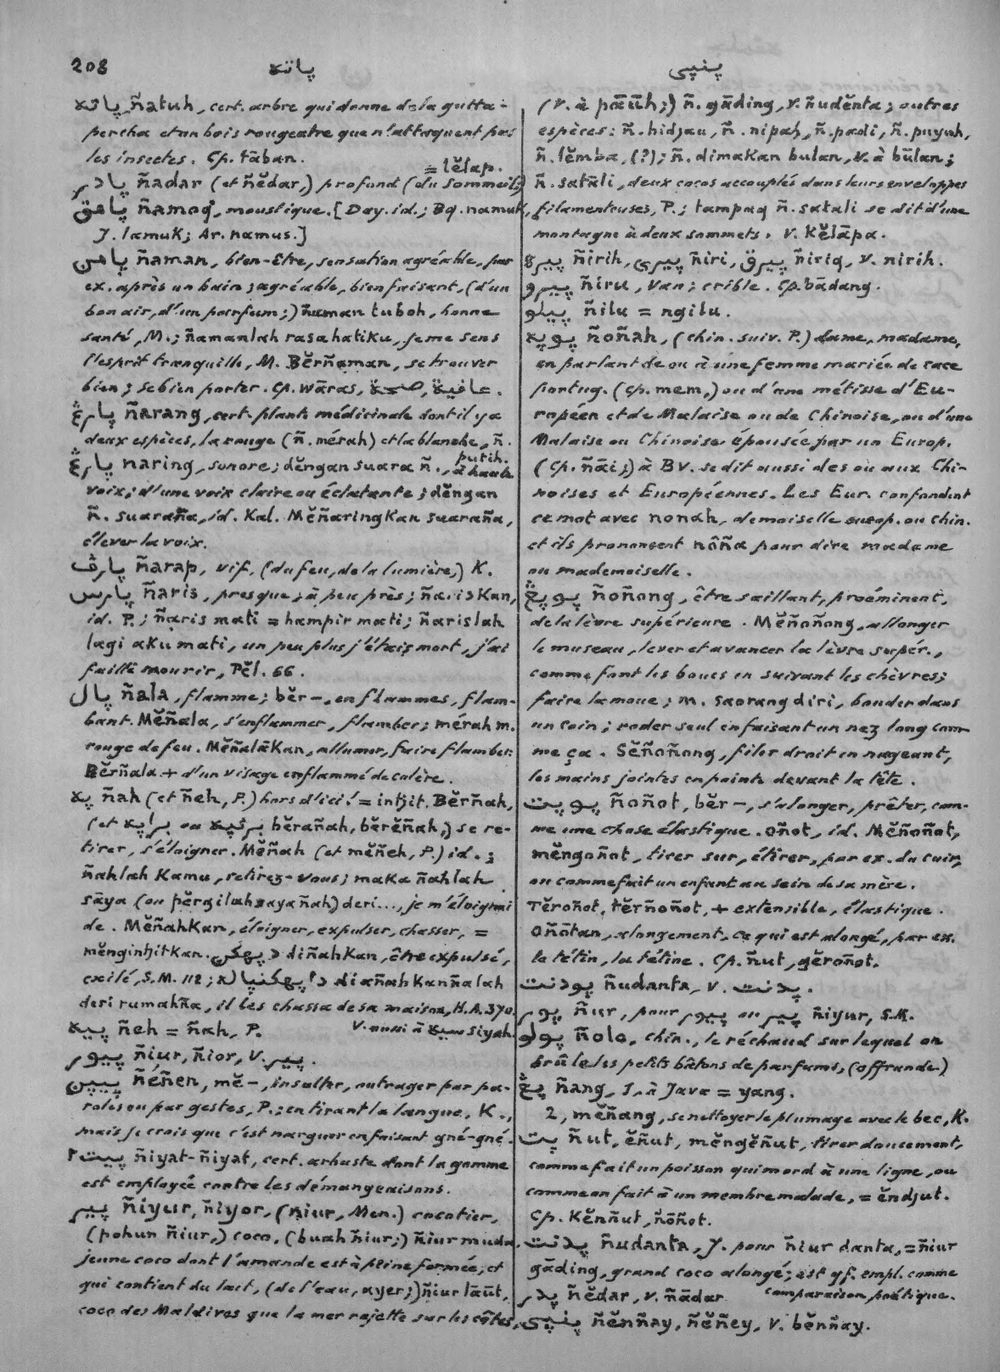 208
ڽاته
ڽنڽي
ڽاته ñatuh, cert. arbre qui donne de la gutta-
percha et un bois rougeatre que n'attaquent pas
les insectes. Cp. tāban.
= lĕlap.
ڽادر ñadar (et ñĕdar,) profond (du sommeil)
ڽامق ñamoq, moustique. [Day. id.; Bq. namuk,
J. lamuk; Ar. namus.]
ڽامن ñaman, bien-être, sensation agréable, par
ex. après un bain; agréable, bienfaisant, (d'un
bon air, d'un parfum;) ñaman tuboh, bonne
santé, M.; ñamanlah rasa hatiku, je me sens
l'esprit tranquille, M. Bĕrñaman, se trouver
bien; se bien porter. Cp. wāras, صحة, عافية.
ڽارڠ ñarang, cert. plante médicinale dont il y a
deux espèces, la rouge (ñ. mérah) et la blanche, ñ.
putih.
ڽارڠ ñaring, sonore; dĕngan suara ñ., à haute
voix; d'une voix claire ou éclatante; dĕngan
ñ. suaraña, id. Kal. Mĕñaringkan suaraña,
élever la voix.
ڽارڤ ñarap, vif, (du feu, de la lumière,) K.
ڽارس ñaris, presque, à peu près; ñariskan,
id. P.; ñaris mati = hampir mati; ñarislah
lagi aku mati, un peu plus j'étais mort, j'ai
failli mourir, Pĕl. 66.
ڽال ñala, flamme; bĕr-, en flammes, flam-
bant. Mĕñala, s'enflammer, flamber; mérah m.
rouge de feu. Mĕñalākan, allumer, faire flamber.
Bĕrñala + d'un visage enflammé de colère.
ڽه ñah (et ñeh, P.) hors d'ici! = intjit. Bĕrñah,
(et براڽه ou برڽه bĕrañah, bĕrĕñah,) se re-
tirer, s'éloigner. Mĕñah (et mĕñeh, P.) id.;
ñahlah kamu, retirez-vous; maka ñahlah
sāya (ou pĕrgilah saya ñah) deri..., je m'éloignai
de. Mĕñahkan, éloigner, expulser, chasser, =
mĕnginhitkan. دڽهكن diñahkan, être expulsé,
exilé, S.M. 112; diañahkanñalah
deri rumahña, il les chassa de sa maison, H.A. 370.
V. aussi à سيه siyah.
ڽيه ñeh = ñah, P.
ڽيور ñiur, ñior, v. ڽير.
ڽيڽن ñéñen, mĕ-, insulter, outrager par pa-
roles ou par gestes, P.; en tirant la langue, K.,
mais je crois que c'est narguer en faisant gné-gné.
ڽيت٢ ñiyat-ñiyat, cert. arbuste dont la gomme
est employée contre les démangeaisons.
ڽير ñiyur, ñiyor, (niur, Men.) cocotier,
(pohun ñiur,) coco, (buah ñiur;) ñiur muda,
jeune coco dont l'amande est à peine formée, et
qui contient du lait, (de l'eau, ayer;) ñiur lāut,
coco des Maldives que la mer rejette sur les côtes,
(v. à pāūh;) ñ. gāding, v. ñudĕnta; outres
espèces: ñ. hidjau, ñ. nipah, ñ. padi, ñ. puyuh,
ñ. lĕmba, (?); ñ. dimakan bulan, v. à būlan;
ñ. satāli, deux cocos accouplés dans leurs enveloppes
filamenteuses, P.; tampaq ñ. satali se dit d'une
montagne à deux sommets. v. kĕlāpa.
ڽيره ñirih, ڽيري ñiri, ڽيرق ñiriq, v. nirih.
ڽيرو ñiru, van; crible. Cp. bādang.
ڽيلو ñilu = ngilu.
ڽوڽه ñoñah, (chin. suiv. P.) dame, madame,
en parlant de ou à une femme mariée de race
portug. (cp. mem,) ou d'une métisse d'Eu-
ropéen et de Malaise ou de Chinoise, ou d'une
Malaise ou Chinoise épousée par un Europ.
(cp. ñāi;) à Bv. se dit aussi des ou aux Chi-
noises et Européennes. Les Eur. confondent
ce mot avec nonah, demoiselle europ. ou chin.
et ils prononcent nôña pour dire madame
ou mademoiselle.
ڽوڽڠ ñoñong, être saillant, proéminent,
de la lèvre supérieure. Mĕñoñong, allonger
le museau, lever et avancer la lèvre supér.,
comme font les boucs en suivant les chèvres;
faire la moue; m. saorang diri, bouder dans
un coin; roder seul en faisant un nez long com-
me ça. Sĕñoñong, filer droit en nageant,
les mains jointes en pointe devant la tête.
ڽوڽت ñoñot, bĕr-, s'alonger, prêter, com-
me une chose élastique. oñot, id. Mĕñoñot,
mĕngoñot, tirer sur, étirer, par ex. du cuir,
ou comme fait un enfant au sein de sa mère.
Tĕroñot, tĕrñoñot, + extensible, élastique.
Oñotan, alongement, ce qui est alongé, par ex.
le tétin, la tétine. Cp. ñut, gĕroñot.
ڽودنت ñudanta, v. ڽدنت.
ڽور ñur, pour ڽيور ou ڽير ñiyur, S.M.
ڽولو ñolo, chin., le réchaud sur lequel on
brûle les petits bâtons de parfums, (offrande.)
ڽڠ ñang, 1, à Java = yang.
2, mĕñang, se nettoyer le plumage avec le bec, K.
ڽت ñut, ĕñut, mĕngĕñut, tirer doucement,
comme fait un poisson qui mord à une ligne, ou
comme on fait à un membre malade, = ĕndjut.
Cp. Kĕnñut, ñoñot.
ڽدنت ñudanta, J. pour ñiur danta, = ñiur
gāding, grand coco alongé; est qf. empl. comme
comparaison poétique.
ڽدر ñĕdar, v. ñādar
ڽنڽي ñĕnñay, ñĕñey, v. bĕnñay.